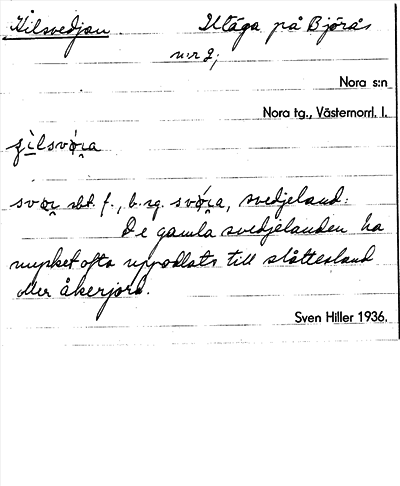 Kilsvedjan. Utäga på Björås
n:r 2;
Nora s:n
Nora tg., Västernorrl. l.
svedjeland:
De gamla svedjelanden ha
mycket ofta uppodlats till slåttesland
eller åkerjord.
Sven Hiller 1936.